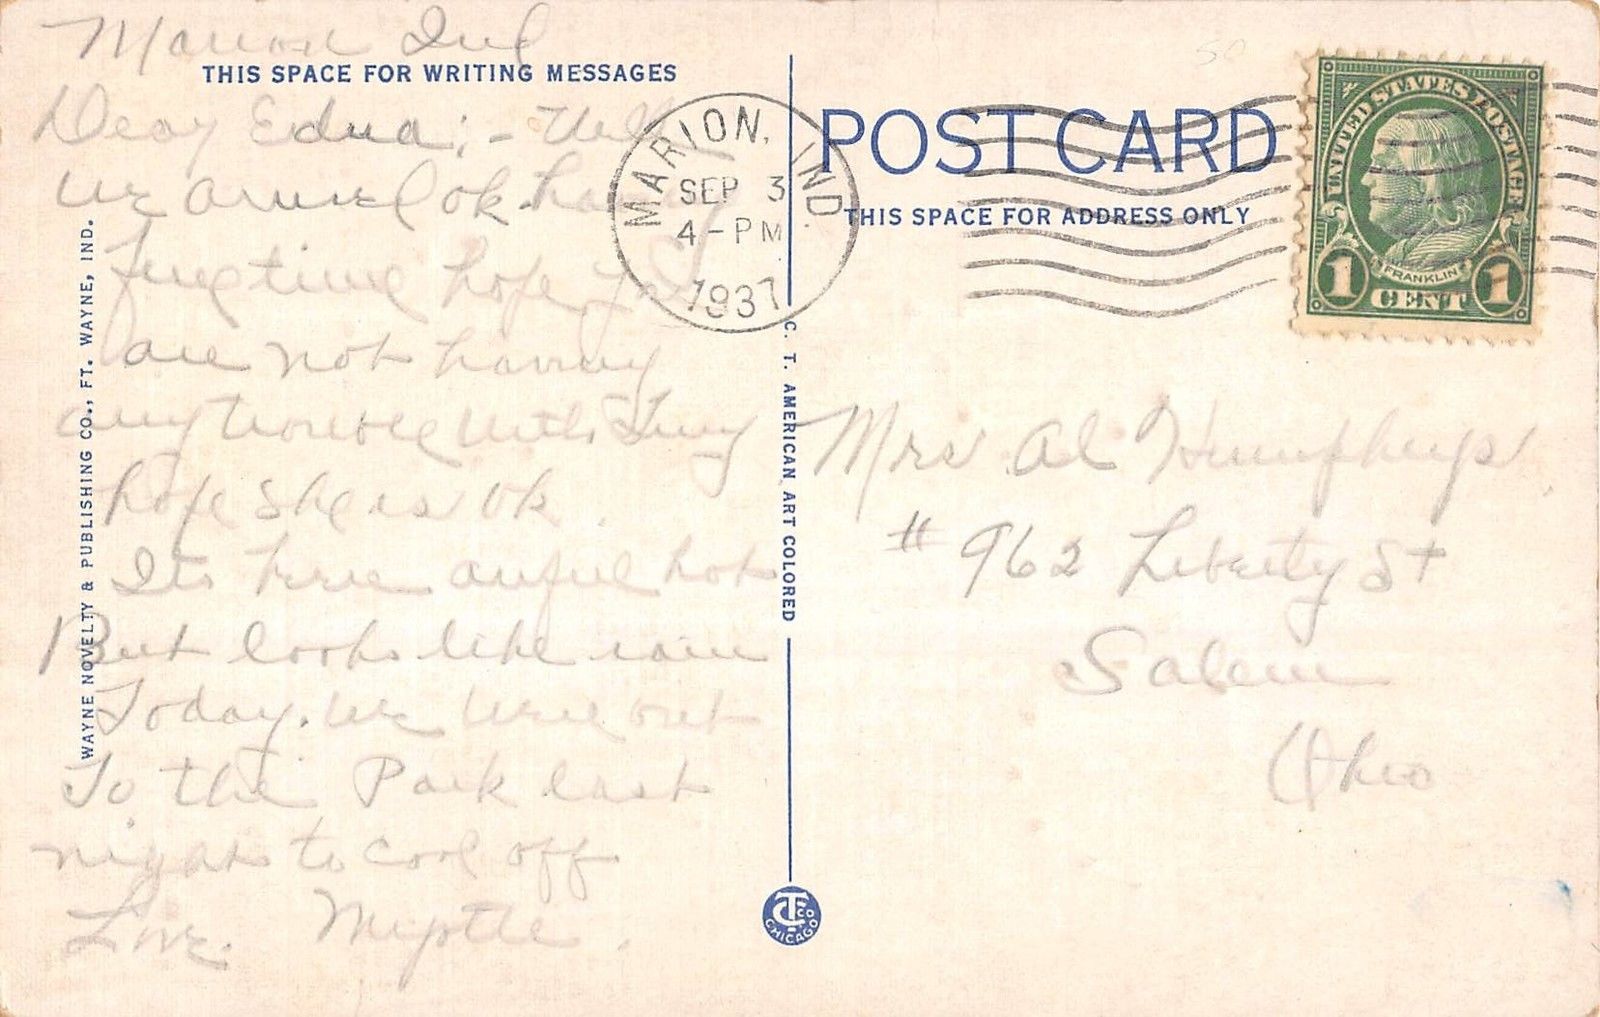 Marion Ind
THIS SPACE FOR WRITING MESSAGES
Dear Edna; - Well
we arrived ok. having
fine time hope you
are not having
any trouble with
hope she is ok.
Its here awful hot
But looks like rain
Today. we were out
To the Park last
night to cool off
Love. Myrtle.
WAYNE NOVELTY & PUBLISHING CO., FT. WAYNE, IND.
MARION, IND
SEP 3
4-PM
1937
C. T. AMERICAN ART COLORED
CT CO
CHICAGO
POST CARD
THIS SPACE FOR ADDRESS ONLY
UNITED STATES POSTAGE
FRANKLIN
1 CENT 1
50
Mrs Al Humphreys
# 962 Liberty St
Salem
Ohio